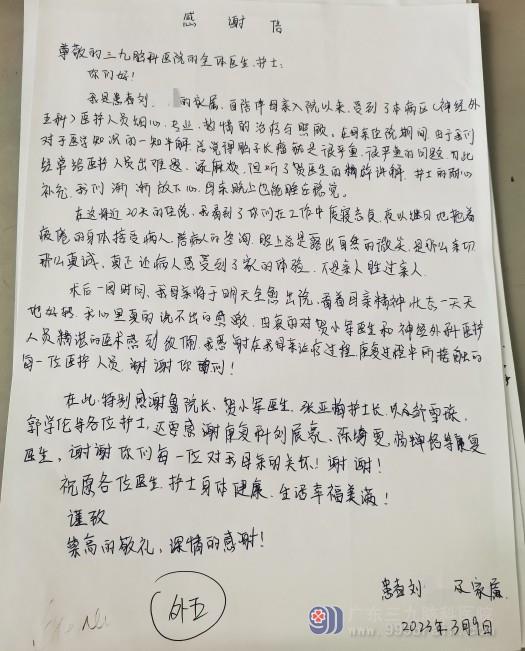 感谢信
尊敬的三九脑科医院的全体医生、护士:
你们好!
我是患者刘 的家属,自陪伴母亲入院以来,受到了本病区(神经外
五科)医护人员细心、专业、热情的治疗与照顾。在母亲住院期间,由于我们
对于医学知识的一知半解,总觉得脑子长瘤就是很严重、很严重的问题,为此
经常给医护人员出难题、添麻烦,但听了贺医生的精辟讲解,护士的耐心
补充,我们渐渐放下心,母亲晚上也能睡安稳觉。
在这将近20天的住院,我看到了你们在工作中废寝忘食,夜以继日地拖着
疲倦的身体接受病人、陪病人的咨询,脸上总是露出自然的微笑,是那么亲切
那么真诚,真正让病人感受到了家的体验,不是亲人胜过亲人。
术后一周时间,我母亲将于明天全愈出院,看着母亲精神状态一天天
地好转,我心里真的说不出的感激,由衷的对贺小军医生和神经外科医护
人员精湛的医术感到钦佩。我感谢在我母亲治疗过程、康复过程中所接触的
每一位医护人员,谢谢你们!
在此,特别感谢鲁院长、贺小军医生、张亚梅护士长,以及邹雪珠、
郭学伦等各位护士,还要感谢康复科刘展豪、陈绮雯、杨婵娟等康复
医生,谢谢你们每一位对我母亲的关怀!谢谢!
祝愿各位医生、护士身体健康、生活幸福美满!
谨致
崇高的敬礼,深情的感谢!
患者刘 及家属
2023年3月9日
外五
广东三九脑科医院